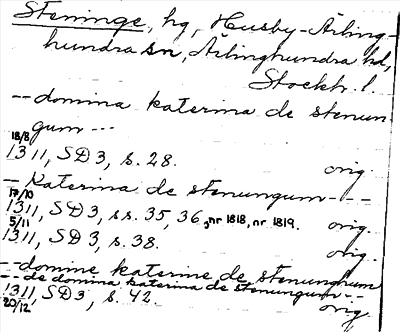 Steninge, hg, Husby-Ärling-
hundra sn, Ärlinghundra hd,
Stockh. l.
-- domina katerina de stenun
gum ---
18/8
1311, SD 3, s. 28. orig.
- Katerina de stenungum - - -
17/10
1311, SD 3, ss. 35, 36, nr 1818, nr 1819. orig.
5/11
1311, SD 3, s. 38. orig.
-- domine katerine de stenunghum
-- de domina katerina de stenungum --
1311, SD 3, s. 42. orig.
20/12